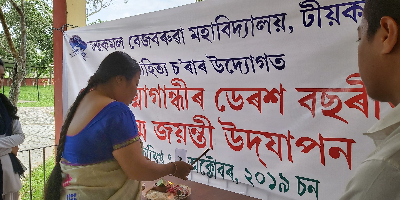 কমল বেজবৰুৱা মহাবিদ্যালয়, টীয়ক
হিত্য চ'ৰাৰ উদ্যোগত
গান্ধীৰ ডেৰশ বছৰী
জয়ন্তী উদ্‌যাপন
অক্টোবৰ, ২০১৯ চন